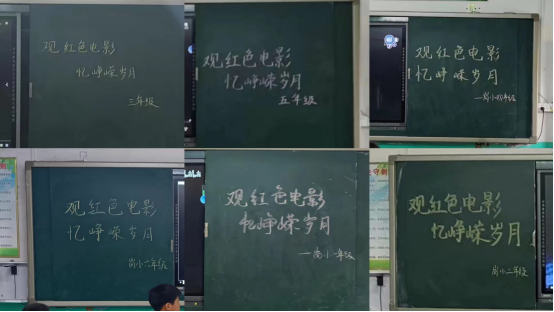 观红色电影
忆峥嵘岁月
三年级
观红色电影
忆峥嵘岁月
五年级
观红色电影
忆峥嵘岁月
—岗小四年级
观红色电影
忆峥嵘岁月
岗小六年级
观红色电影
忆峥嵘岁月
—岗小一年级
观红色电影
忆峥嵘岁月
岗小二年级